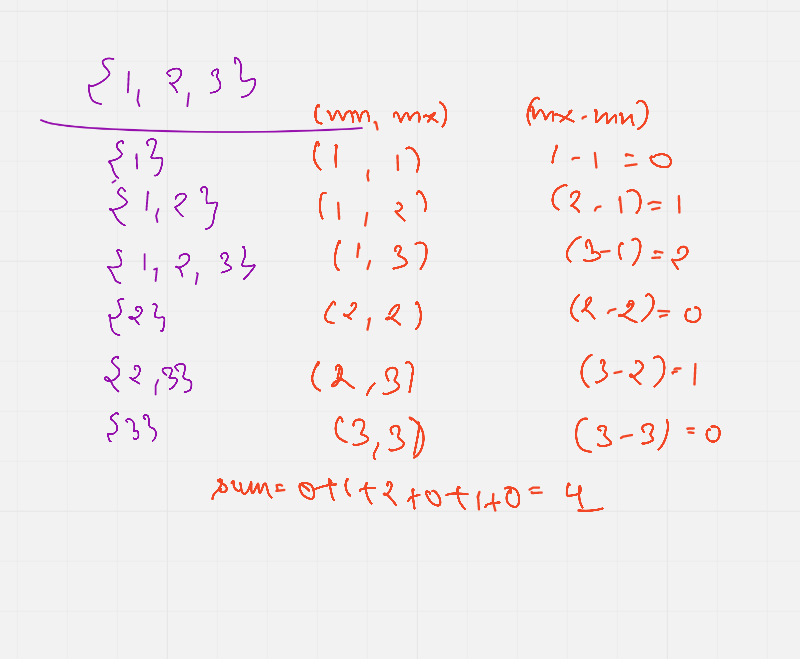 {1, 2, 3}
(mn, mx) (mx - mn)
{1} (1, 1) 1 - 1 = 0
{1, 2} (1, 2) (2 - 1) = 1
{1, 2, 3} (1, 3) (3-1) = 2
{2} (2, 2) (2 - 2) = 0
{2, 3} (2, 3) (3 - 2) = 1
{3} (3, 3) (3 - 3) = 0
sum = 0+1+2+0+1+0 = 4